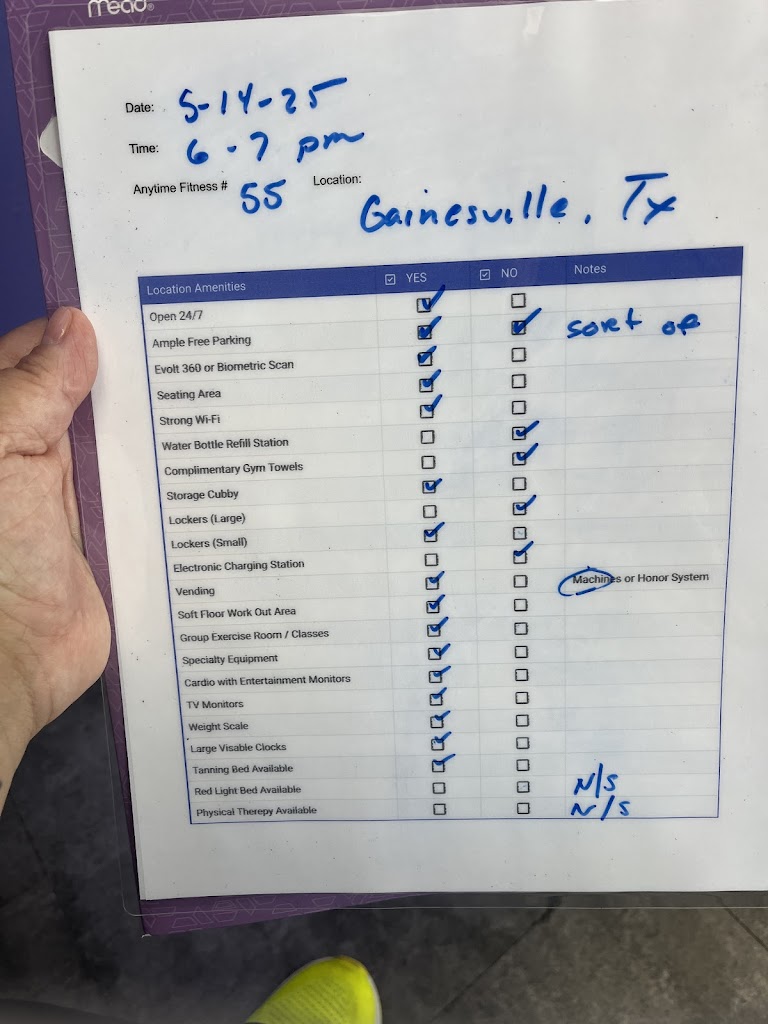 mead®
Date: 5-14-25
Time: 6-7 pm
Anytime Fitness # 55 Location: Gainesville, Tx
Location Amenities ☑ YES ☑ NO Notes
Open 24/7 ☑ ☐
Ample Free Parking ☑ ☑ sort of
Evolt 360 or Biometric Scan ☑ ☐
Seating Area ☑ ☐
Strong Wi-Fi ☑ ☐
Water Bottle Refill Station ☐ ☑
Complimentary Gym Towels ☐ ☑
Storage Cubby ☑ ☐
Lockers (Large) ☐ ☑
Lockers (Small) ☑ ☐
Electronic Charging Station ☐ ☑
Vending ☑ ☐ Machines or Honor System
Soft Floor Work Out Area ☑ ☐
Group Exercise Room / Classes ☑ ☐
Specialty Equipment ☑ ☐
Cardio with Entertainment Monitors ☑ ☐
TV Monitors ☑ ☐
Weight Scale ☑ ☐
Large Visable Clocks ☑ ☐
Tanning Bed Available ☑ ☐
Red Light Bed Available ☐ ☐ N/S
Physical Therepy Available ☐ ☐ N/S